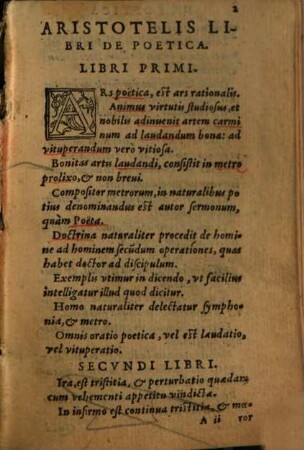 2
ARISTOTELIS LI-
BRI DE POETICA.
LIBRI PRIMI.
ARS poetica, est ars rationalis.
Animus virtutis studiosus, et
nobilis adinuenit artem carmi
num ad laudandum bona: ad
vituperandum verò vitiosa.
Bonitas artis laudandi, consistit in metro
prolixo, & non breui.
Compositor metrorum, in naturalibus po
tius denominandus est autor sermonum,
quàm Poëta.
Doctrina naturaliter procedit de homi
ne ad hominem secũdum operationes, quas
habet doctor ad discipulum.
Exemplis vtimur in dicendo, vt facilius
intelligatur illud quod dicitur.
Homo naturaliter delectatur symphо
nia, & metro.
Omnis oratio poetica, vel est laudatio,
vel vituperatio.
SECVNDI LIBRI.
Ira, est tristitia, & perturbatio quædam
cum vehementi appetitu vindictæ.
In infirmo est continua tristitia, & mæ-
A ii ror